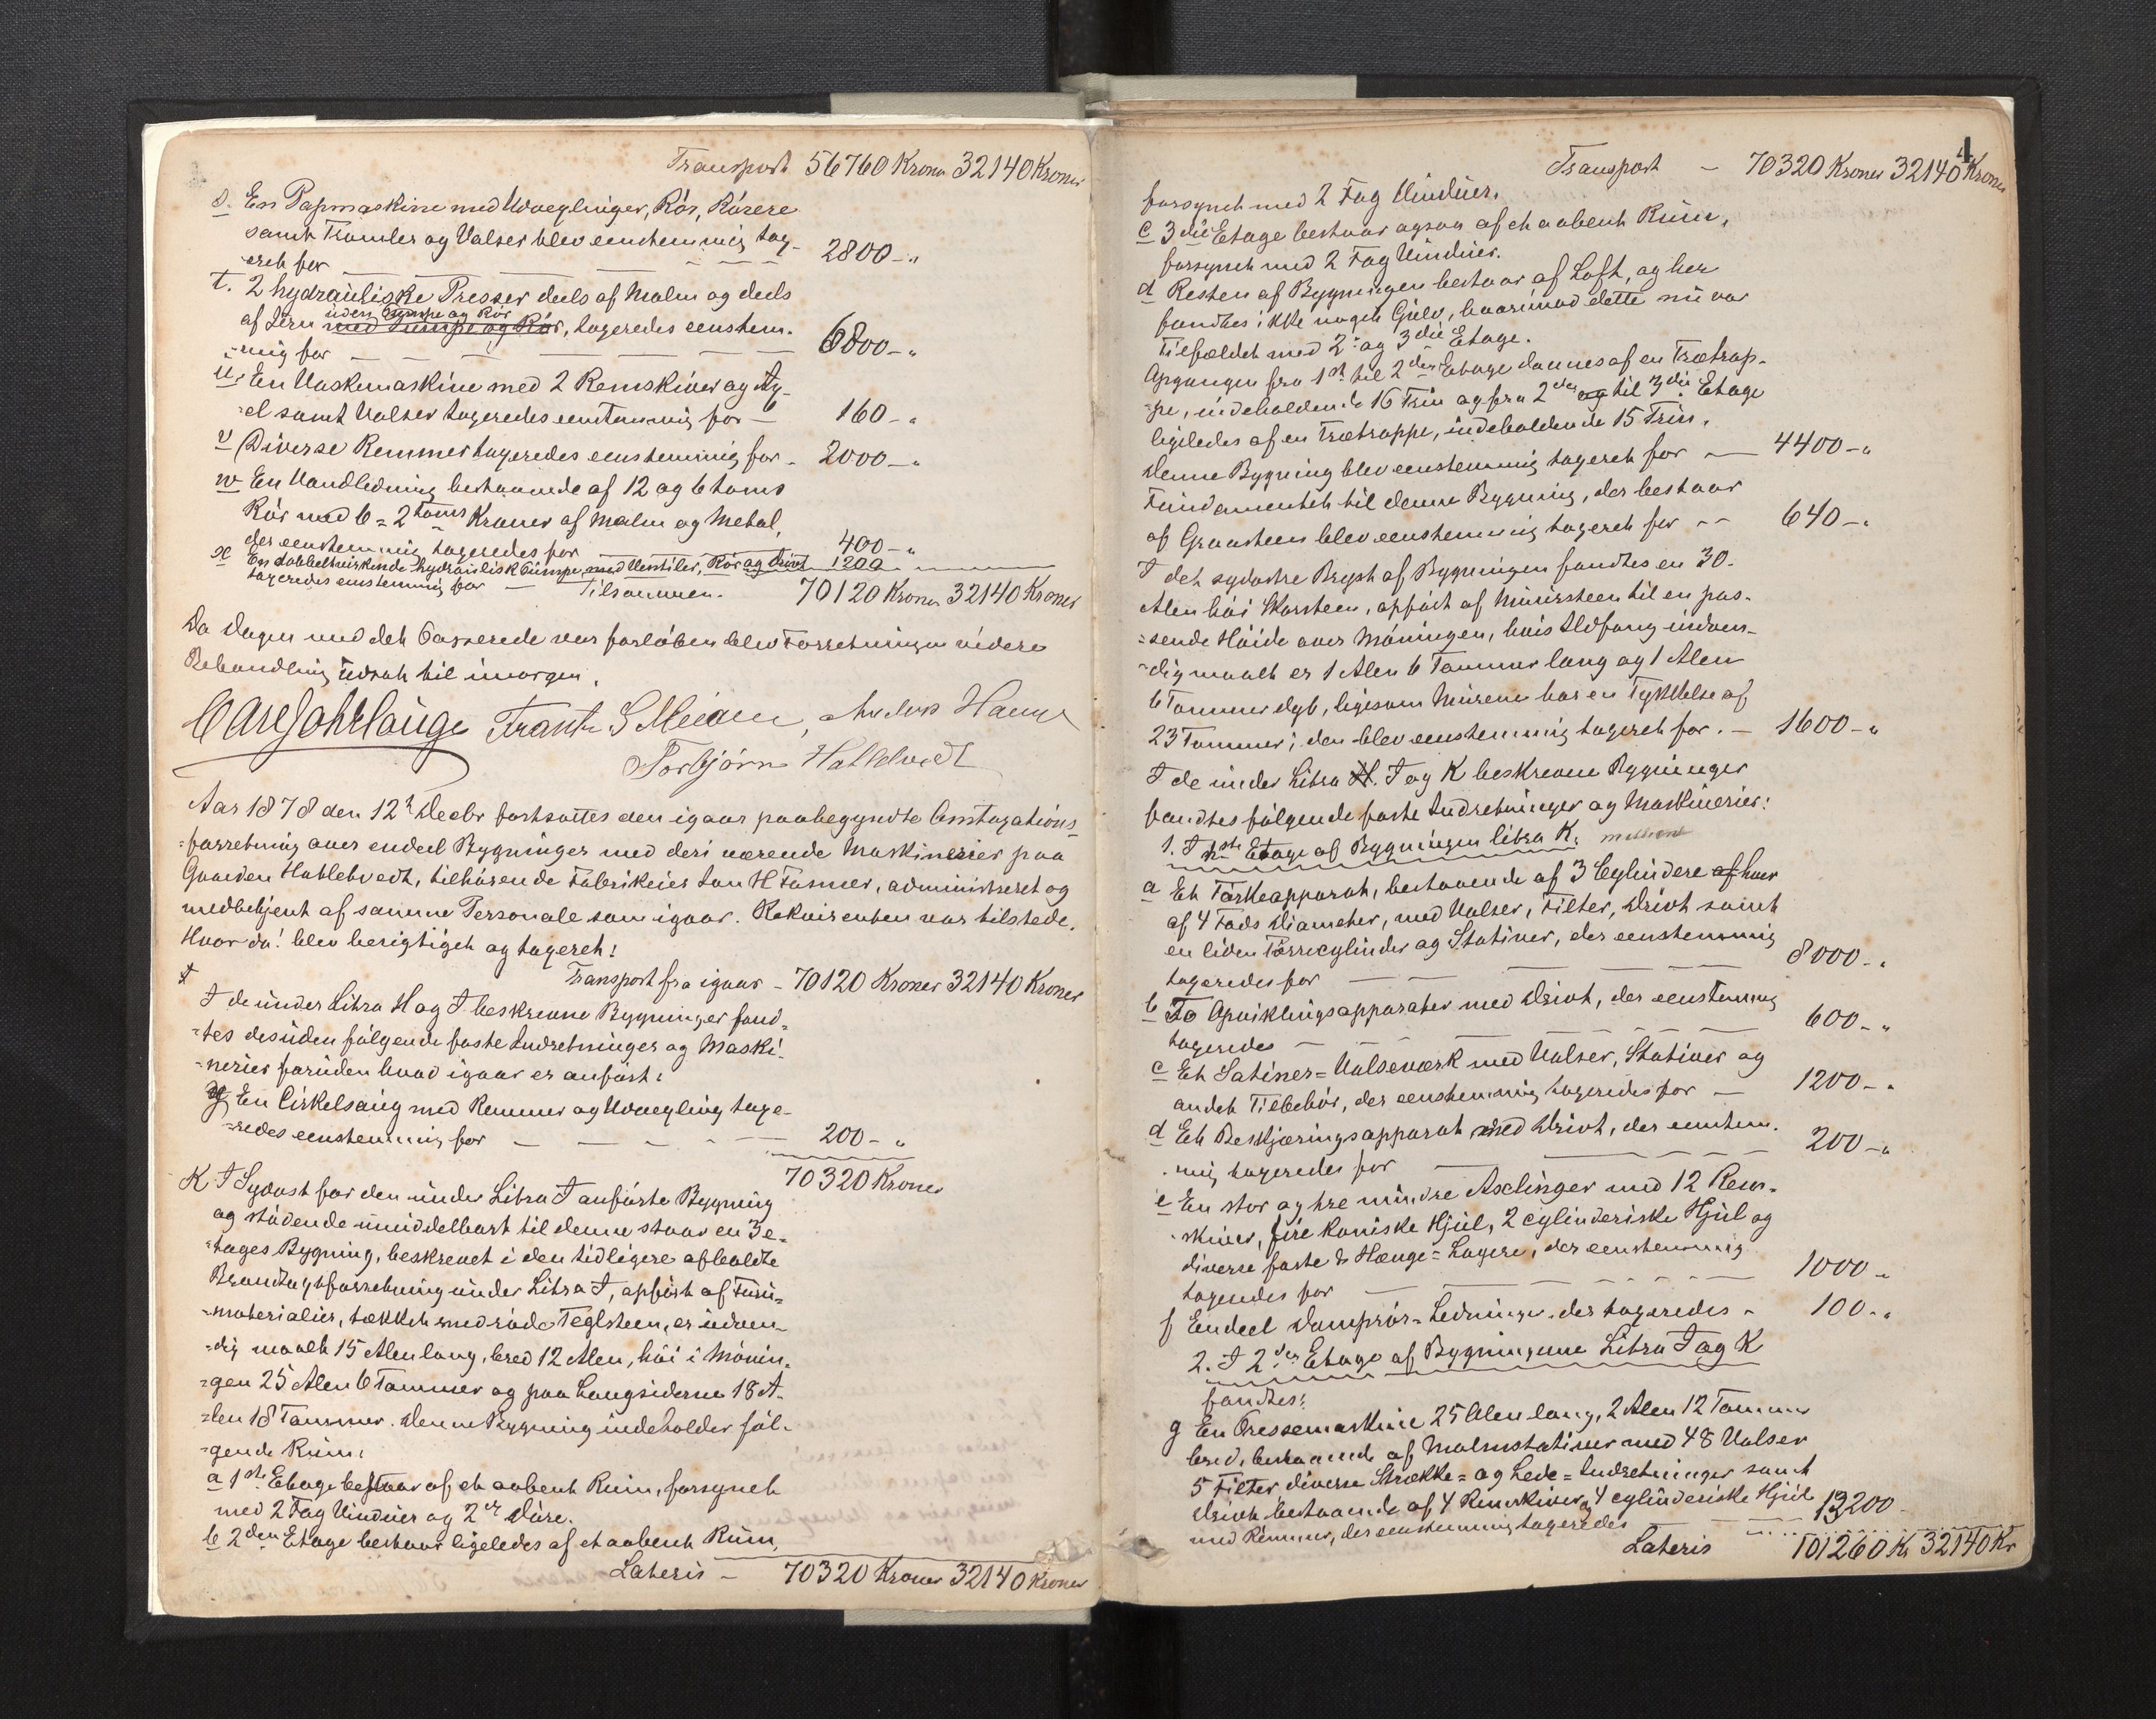 Transport 56760 Kroner 32140 Kroner
s. En Papmaskine med Udvexlinger, Rör, Rörere
samt Tromler og Valser blev eenstemmig tax-
eret for — — — — — 2800 - "
t. 2 hydrauliske Presser deels af Malm og deels
uden Pumpe og Rör
af Jern med Pumpe og Rör, taxeredes eenstem-
-mig for — — — — — 6800 - "
u. En Vaskemaskine med 2 Remskiver og Ax-
-el samt Valser taxeredes eenstemmig for — 160 - "
v Diverse Remmer taxeredes eenstemmig for - 2000 - "
w En Vandledning bestaaende af 12 og 6 toms
Rör med 6 = 2 toms Kraner af Malm og Metal,
der eenstemmig taxeredes for 400 - "
x En dobbeltvirkende hydraulisk Pumpe med Ventiler, Rör og Drivt 1200
taxeredes eenstemmig for — Tilsammen. 70120 Kroner 32140 Kroner
Da Dagen med det Passerede var forlöben blev Forretningen videre
Behandling udsat til imorgen.
Frantz S Meidell, Anders Hauge
Torbjörn Hatlebredt
Aar 1878 den 12te Decbr fortsattes den igaar paabegyndte Omtaxations-
-forretning over endeel Bygninger med deri værende Maskinerier paa
Gaarden Hatlebredt, tilhörende Fabrikeier Jan H Fasmer, administreret og
medbetjent af samme Personale som igaar. Rekvirenten var tilstede.
Hvor da! blev berigtiget og taxeret:
Transport fra igaar - 70120 Kroner 32140 Kroner
I de under Litra H og I beskrevne Bygninger fand-
-tes desuden fölgende faste Indretninger og Maski-
-nerier foruden hvad igaar er anfört:
y En Cirkelsaug med Remmer og Udvexling taxe-
-redes eenstemmig for — — — — 200 - "
70320 Kroner
K I Sydost for den under Litra I anförte Bygning
og stödende umiddelbart til denne staar en 3 e-
-tages Bygning, beskrevet i den tidligere afholdte
Brandtaxtforretning under Litra I, opfört af Furu-
-materialier, tækket med röde Teglsteen, er udven-
-dig maalt 15 Alen lang, bred 12 Alen, höi i Mönin-
-gen 25 Alen 6 Tommer og paa Langsiderne 18 A-
-len 18 Tommer. Denne Bygning indeholder föl-
-gende Rum:
a 1ste Etage bestaar af et aabent Rum, forsynet
med 2 Fag Vinduer og 2de Döre.
b 2den Etage bestaar ligeledes af et aabent Rum,
Lateris - 70320 Kroner 32140 Kroner
4
Transport — 70320 Kroner 32140 Kroner
forsynet med 2 Fag Vinduer.
c 3die Etage bestaar ogsaa af et aabent Rum,
forsynet med 2 Fag Vinduer.
d Resten af Bygningen bestaar af Loft, og her
fandtes ikke noget Gulv, hvorimod dette nu var
Tilfældet med 2: og 3die Etage.
Opgangen fra 1ste til 2den Etage dannes af en Trætrap-
-pe, indeholdende 16 Trin og fra 2den og til 3die Etage
ligeledes af en Trætrappe, indeholdende 15 Trin.
Denne Bygning blev eenstemmig taxeret for — 4400 - "
Fundamentet til denne Bygning, der bestaar
af Graasteen blev eenstemmig taxeret for -- 640 - "
I det sydostre Bryst af Bygningen fandtes en 30.
Alen höi Skorsteen, opfört af Muursteen til en pas-
-sende Höide over Möningen, hvis Ildfang indven-
-dig maalt er 1 Alen 6 Tommer lang og 1 Alen
6 Tommer dyb, ligesom Murene har en Tykkelse af
23 Tommer; den blev eenstemmig taxeret for. — 1600 - "
I de under Litra H. I og K beskrevne Bygninger
fandtes fölgende faste Indretninger og Maskinerier:
1. I 1ste Etage af Bygningen litra K.
a Et Törkeapparat, bestaaende af 3 Cylindere af hver
af 4 Fods Diameter, med Valser, Filter, Drivt samt
en liden Törrecylinder og Stativer, der eenstemmig
taxeredes for — — — — 8000 - "
b To Opviklingsapparater med Drivt, der eenstemmig
taxeredes — — — — — 600 - "
c Et Satineer=Valseværk med Valser, Stativer og
andet Tilbehör, der eenstemmig taxeredes for — 1200 - "
d Et Beskjæringsapparat med Drivt, der eenstem-
-mig taxeredes for — — — — 200 - "
e En stor og tre mindre Axelinger med 12 Rem-
-skiver, fire koniske Hjul, 2 cylinderiske Hjul og
diverse faste & Hænge=Lagere, der eenstemmig
taxeredes for — — — — 1000 "
f Endeel Damprör=Ledninger, der taxeredes - 100 - "
2. I 2den Etage af Bygningerne Litra I og K
fandtes:
g En Pressemaskine 25 Alen lang, 2 Alen 12 Tommer
bred, bestaaende af Malmstativer med 48 Valser
5 Filter diverse Strække= og Lede=Indretninger samt
Drivt bestaaende af 4 Remskiver og 4 cylinderiske Hjul
med Remmer, der eenstemmig taxeredes — 13200
Lateris 101260 Kr 32140 Kr